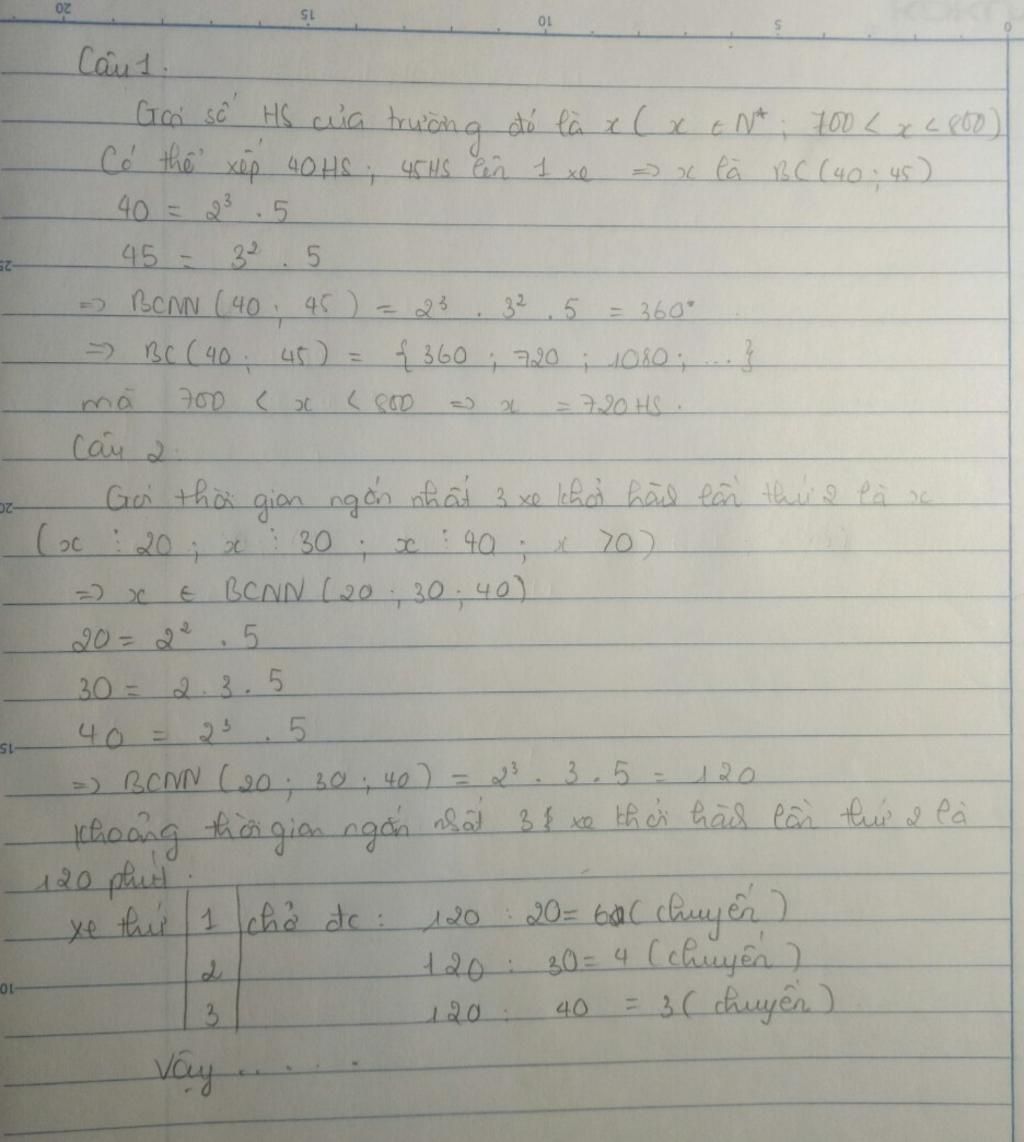 Câu 1.
Gọi số HS của trường đó là x ( x ∈ N* ; 700 < x < 800)
Có thể xếp 40HS ; 45HS lên 1 xe => x là BC(40 ; 45)
40 = 2³ . 5
45 = 3² . 5
=> BCNN (40 ; 45) = 2³ . 3² . 5 = 360
=> BC(40 ; 45) = { 360 ; 720 ; 1080 ; ... }
mà 700 < x < 800 => x = 720 HS.
Câu 2.
Gọi thời gian ngắn nhất 3 xe khởi hành lần thứ 2 là x
(x ⋮ 20 ; x ⋮ 30 ; x ⋮ 40 ; x > 0)
=> x ∈ BCNN (20 ; 30 ; 40)
20 = 2² . 5
30 = 2 . 3 . 5
40 = 2³ . 5
=> BCNN (20 ; 30 ; 40) = 2³ . 3 . 5 = 120
Khoảng thời gian ngắn nhất 3 xe khởi hành lần thứ 2 là
120 phút.
xe thứ 1 chở đc : 120 : 20 = 6 (chuyến)
2 120 : 30 = 4 (chuyến)
3 120 : 40 = 3 (chuyến)
Vậy .....